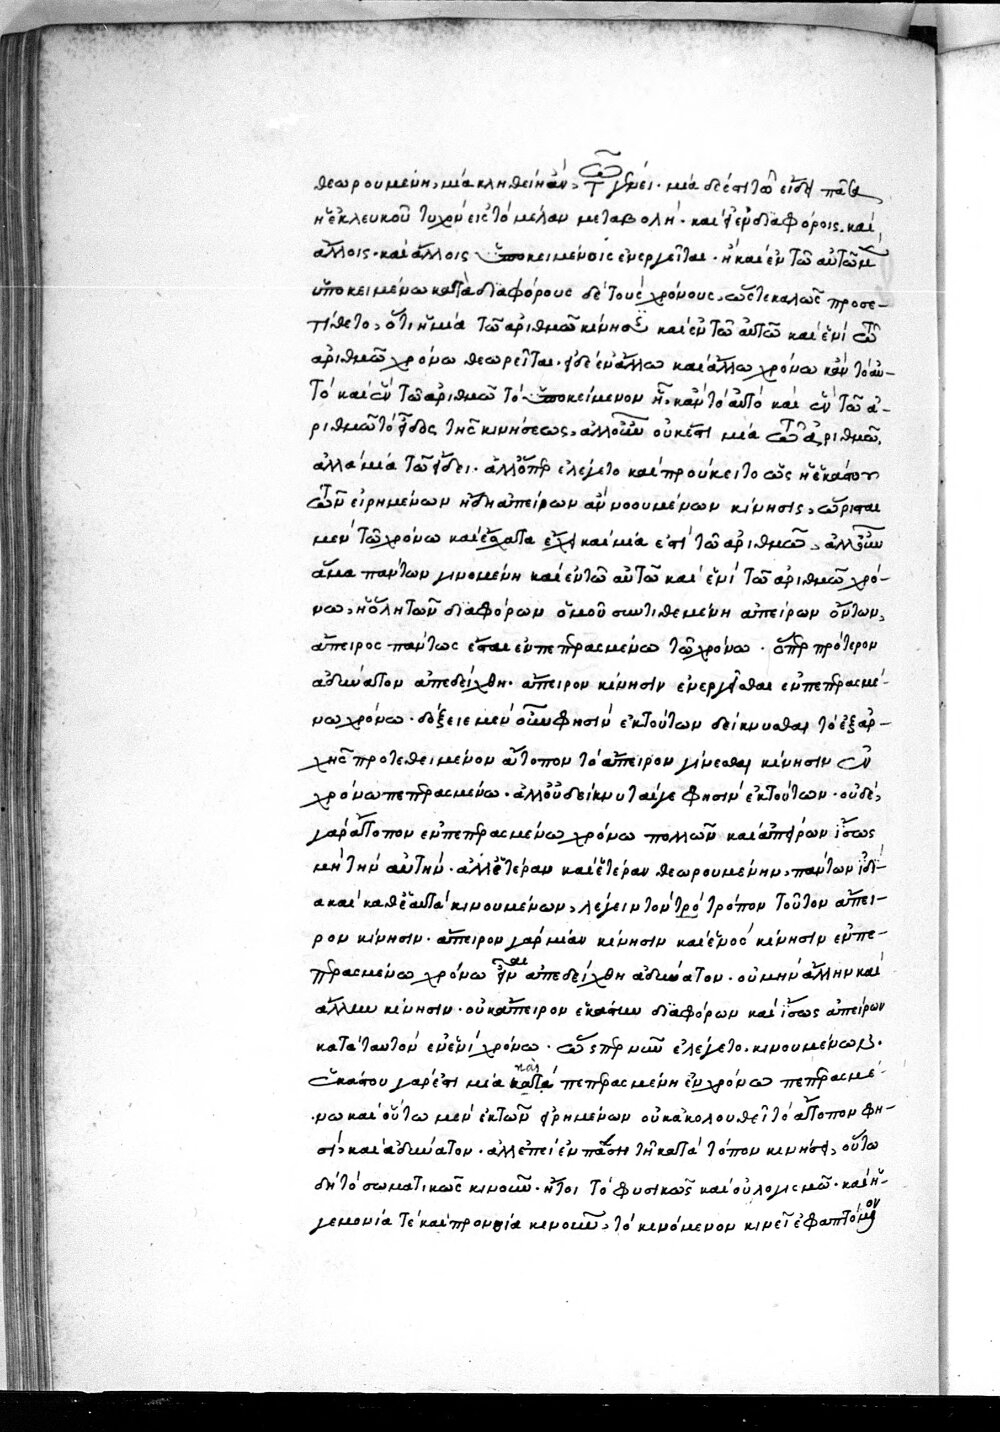 θεωρουμένη, μία κληθείη ἂν, τῷ γένει. μία δέ ἐστι τῷ εἴδει πᾶσα
ἡ ἐκ λευκοῦ τυχὸν εἰς τὸ μέλαν μεταβολή. καὶ ἐν διαφόροις. καὶ
ἄλλοις. καὶ ἄλλοις ὑποκειμένοις ἐνεργεῖται. ἢ καὶ ἐν τῷ αὐτῷ μὲν
ὑποκειμένω κατὰ διαφόρους δὲ τοὺς χρόνους, ὥστε καλῶς προσε-
τίθετο, ὅτι ἡ μία τῷ ἀριθμῷ κίνησις καὶ ἐν τῷ αὐτῷ καὶ ἑνὶ τῷ
ἀριθμῷ χρόνω θεωρεῖται. εἰ δὲ ἐν ἄλλω καὶ ἄλλω χρόνω κἂν τὸ αὐ-
τὸ καὶ ἓν τῷ ἀριθμῷ τὸ ὑποκείμενον ᾖ, κἂν τὸ αὐτὸ καὶ ἓν τῷ ἀ-
ριθμῷ τὸ εἶδος τῆς κινήσεως, ἀλλ' οὖν οὐκέτι μία τῷ ἀριθμῷ,
ἀλλὰ μία τῷ εἴδει. ἀλλ' ὅπερ ἐλέγετο καὶ προύκειτο ὡς ἡ ἑκάστου
τῶν εἰρημένων ἤδη ἀπείρων ἀνοουμένων κίνησις, ὥρισται
μὲν τῷ χρόνω καὶ ἔσχατα ἔχει καὶ μία ἐστὶ τῷ ἀριθμῷ, ἀλλ' οὖν
ἅμα πάντων γινομένη καὶ ἐν τῷ αὐτῷ καὶ ἑνὶ τῷ ἀριθμῷ χρό-
νω, ἡ ὅλη τῶν διαφόρων ὁμοῦ συντιθεμένη ἀπείρων ὄντων,
ἄπειρος πάντως ἔσται ἐν πεπερασμένω τῷ χρόνω. ὅπερ πρότερον
ἀδύνατον ἀπεδείχθη. ἄπειρον κίνησιν ἐνεργεῖσθαι ἐν πεπερασμέ-
νω χρόνω. δόξειε μὲν οὖν φησὶν ἐκ τούτων δείκνυσθαι τὸ ἐξαρ-
χῆς προτεθειμένον ἄτοπον τὸ ἄπειρον γίνεσθαι κίνησιν ἐν
χρόνω πεπερασμένω. ἀλλ' οὐ δείκνυταί γε φησὶν ἐκ τούτων. οὐδὲ,
γὰρ ἄτοπον ἐν πεπερασμένω χρόνω πολλῶν καὶ ἀπείρων ἴσως
μὴ τὴν αὐτὴν. ἀλλ' ἑτέραν καὶ ἑτέραν θεωρουμένην, πάντων ἰδί-
α καὶ καθ' ἑαυτὰ κινουμένων, λέγειν τὸν τρό τρόπον τοῦτον ἄπει-
ρον κίνησιν. ἄπειρον γὰρ μίαν κίνησιν καὶ ἑνὸς κίνησιν ἐν πε-
περασμένω χρόνω εἶναι ἀπεδείχθη ἀδύνατον. οὐ μὴν ἄλλην καὶ
ἄλλην κίνησιν. οὐκ ἄπειρον ἑκάστων διαφόρων καὶ ἴσως ἀπείρων
κατὰ ταυτὸν ἐν ἑνὶ χρόνω. ὥσπερ νῦν ἐλέγετο. κινουμένων.
ἑκάστου γάρ ἐστι μία κατὰ πεπερασμένη ἐν χρόνω πεπερασμέ-
νω καὶ οὕτω μὲν ἐκ τῶν εἰρημένων οὐκ ἀκολουθεῖ τὸ ἄτοπον φη-
σί, καὶ ἀδύνατον. ἀλλ' ἐπεὶ ἐν πάση τῆ κατὰ τόπον κινήσει, οὕτω
δὴ τὸ σωματικῶς κινοῦν. ἤτοι τὸ φυσικῶς καὶ οὐ λογισμῷ. καὶ ἡ-
γεμονία τὲ καὶ προνοία κινοῦν, τὸ κινόμενον κινεῖ ἐφαπτόμενον